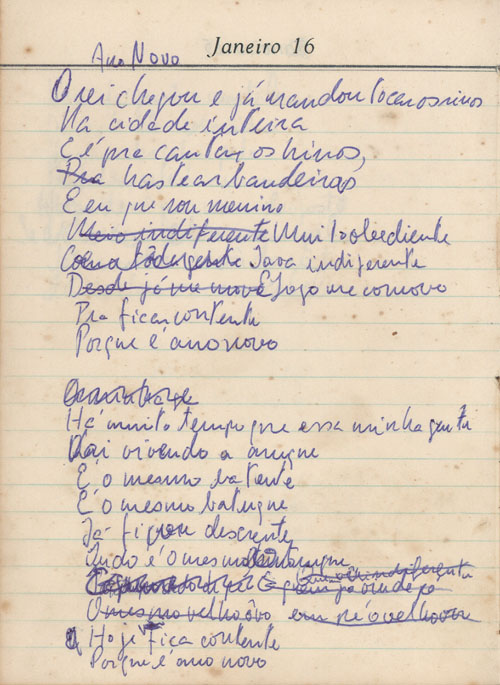 Ano Novo
Janeiro 16
O rei chegou e já mandou tocar os sinos
Na cidade inteira
E é pra cantar os hinos,
Pra hastear bandeiras
E eu que sou menino
Meio indiferente Muito obediente
Como toda gente Tava indiferente
Desde já me movo E logo me comovo
Pra ficar contente
Porque é ano novo
Há muito tempo que essa minha gente
Vai vivendo a muque
É o mesmo batente
É o mesmo batuque
Já ficou descrente
Tudo é o mesmo truque
quem já viu de pé
O mesmo velho ovo
Hoje fica contente
Porque é ano novo